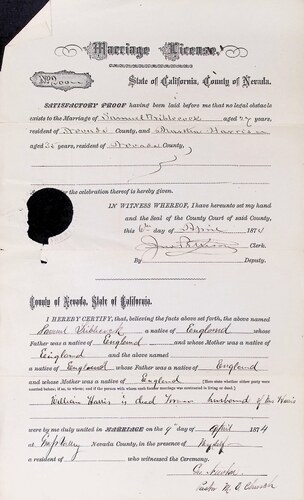 Marriage License.
No
State of California, County of Nevada.
SATISFACTORY PROOF having been laid before me that no legal obstacle
exists to the Marriage of Samuel aged 27 years,
resident of Nevada County, and Martha
aged 32 years, resident of Nevada County,
Authority for the celebration thereof is hereby given.
IN WITNESS WHEREOF, I have hereunto set my hand
and the Seal of the County Court of said County,
this 6th day of April 1874
Clerk.
By Deputy.
County of Nevada, State of California.
I HEREBY CERTIFY, that, believing the facts above set forth, the above named
a native of England whose
Father was a native of England and whose Mother was a native of
England and the above named
a native of England whose Father was a native of England
and whose Mother was a native of England
William Harris is dead former husband of Mrs Harris
were by me duly united in MARRIAGE on the 9th day of April 1874
at Nevada County, in the presence of
a resident of who witnessed the Ceremony.
Pastor M. E. Church